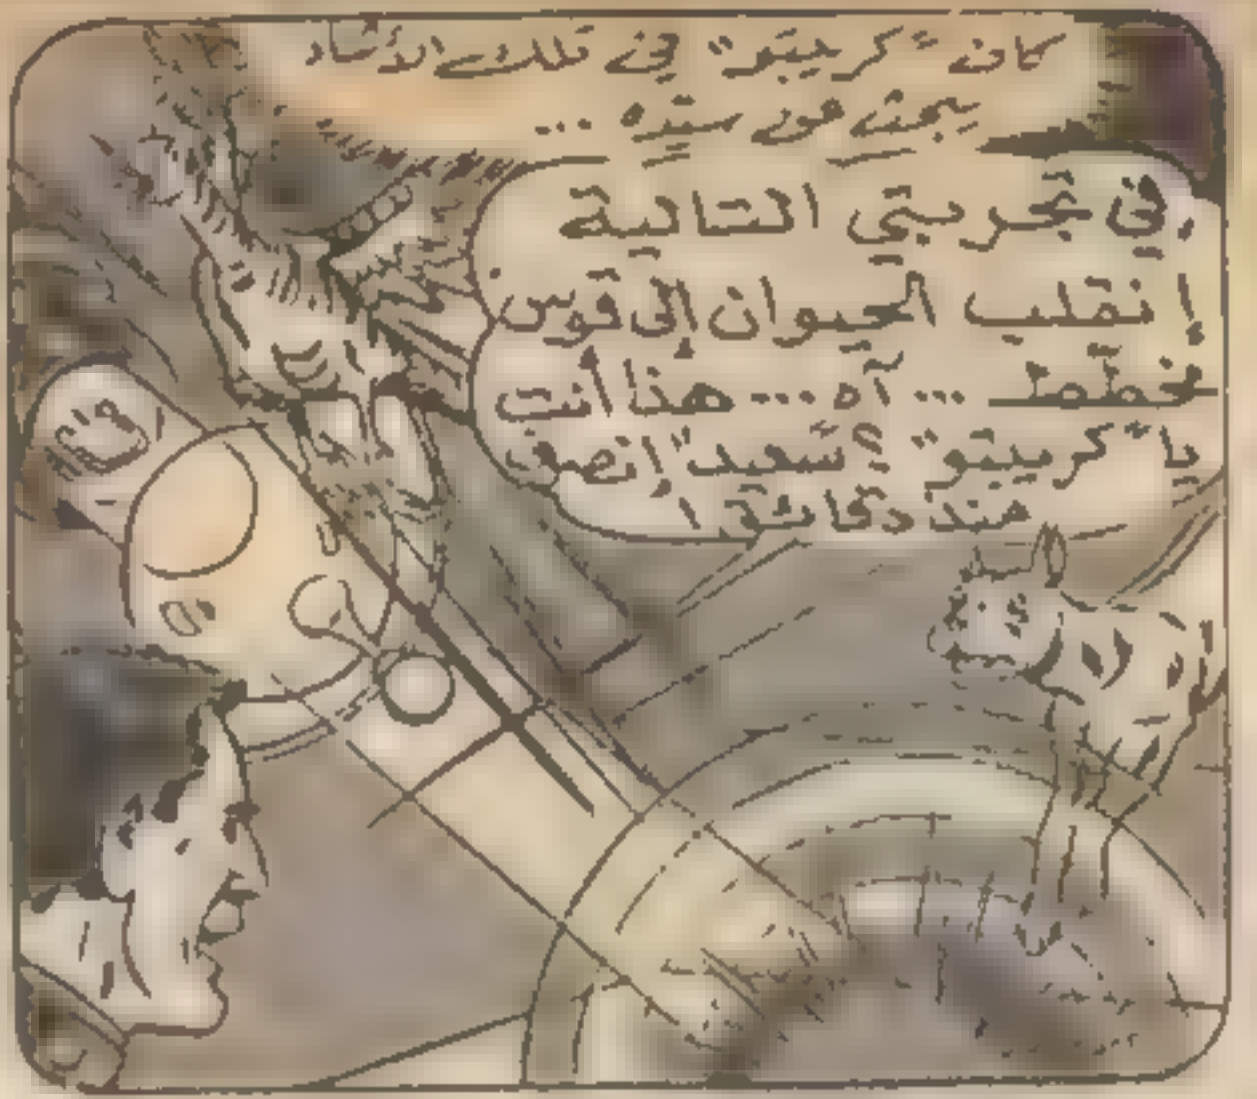 كان "كريبتو" في تلك الأثناء
يبحث عن سيّده ...
في تجربتي التالية
نقلب الحيوان إلى قوس
مخطّط ... آه ... هذا أنت
يا "كريبتو"؟ "سعيد" إنصرف
منذ دقائق!